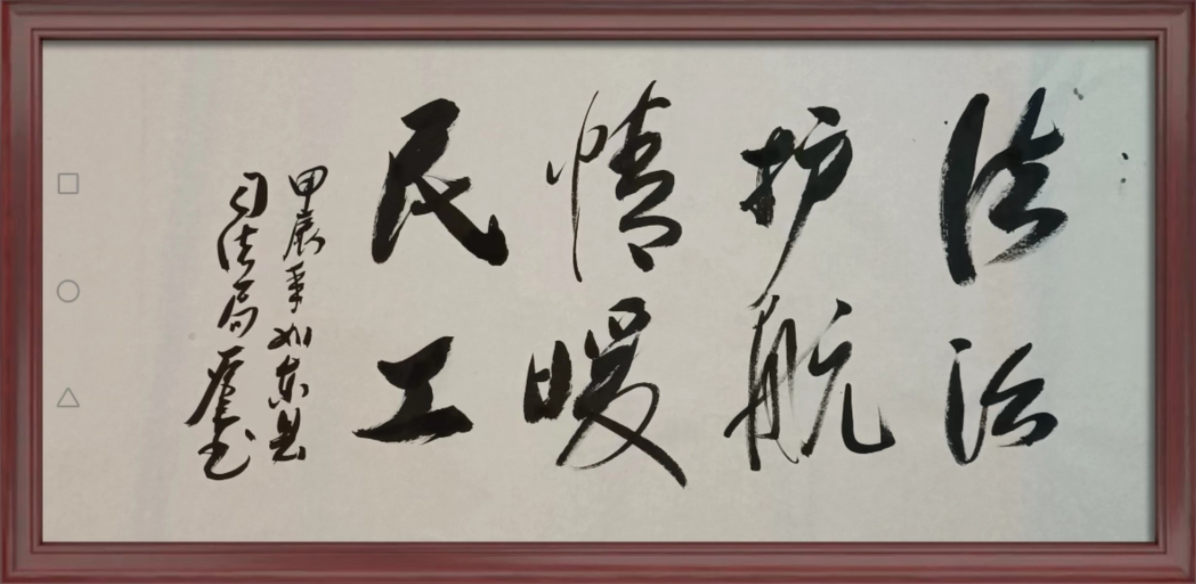 法治
护航
情暖
民工
甲辰年如东县
司法局